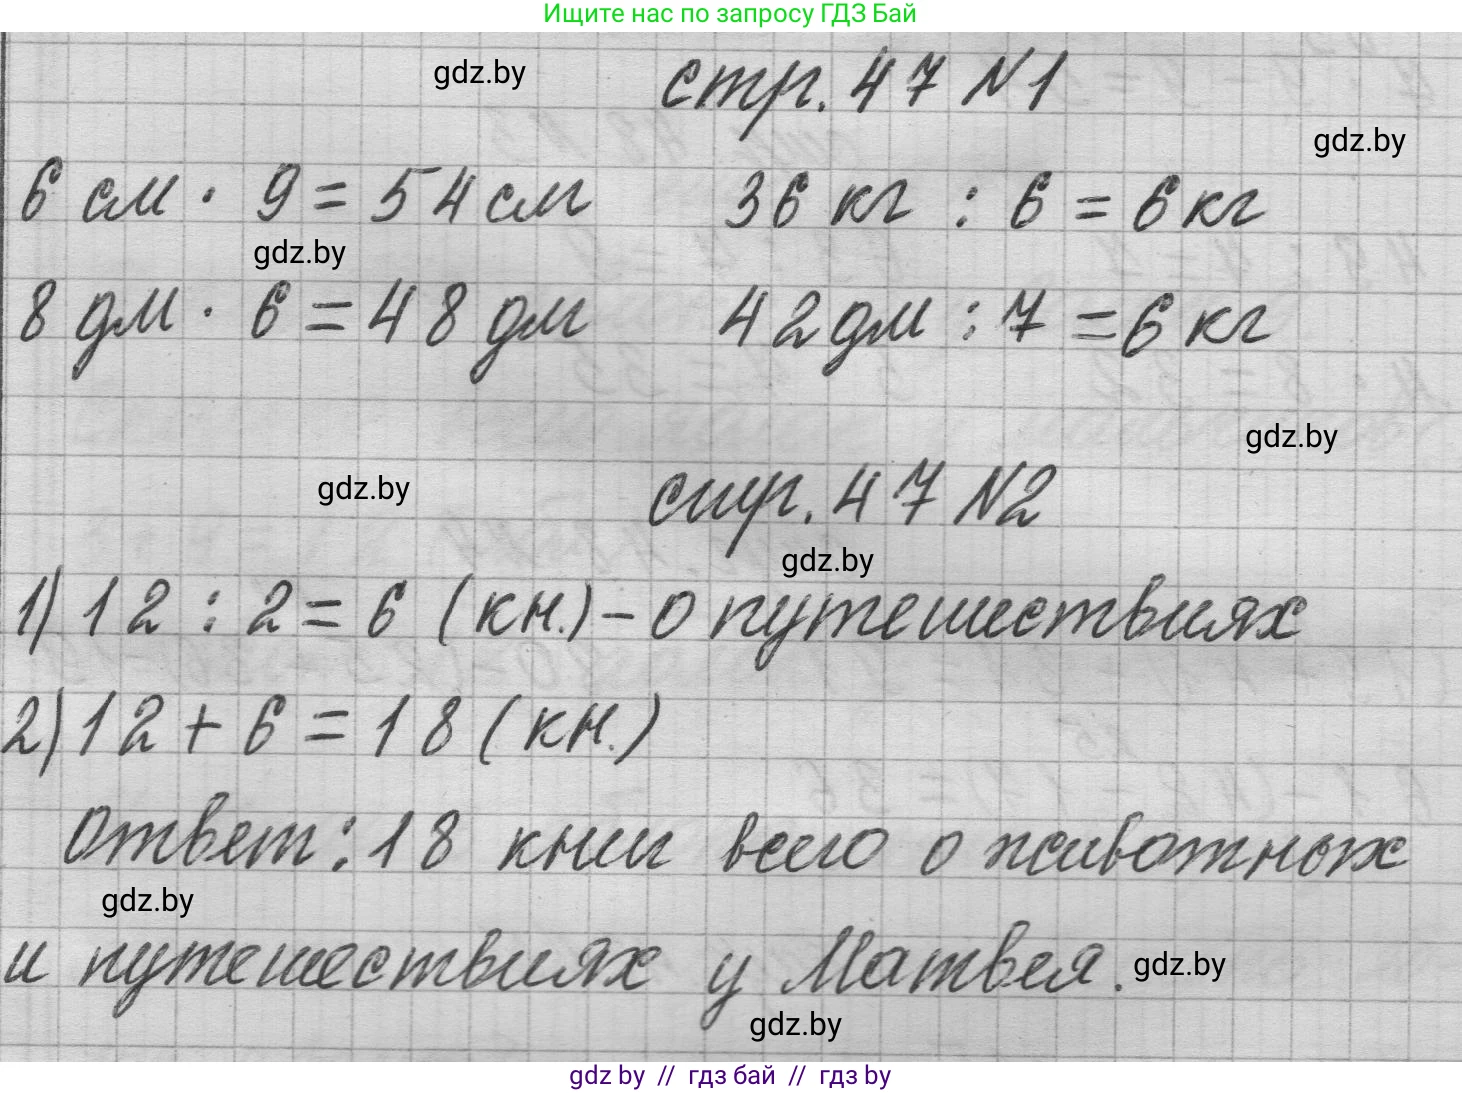 Ищите нас по запросу ГДЗ Бай
gdz.by
стр. 47 N1
gdz.by
6 см · 9 = 54 см 36 кг : 6 = 6 кг
gdz.by
8 дм · 6 = 48 дм 42 дм : 7 = 6 кг
gdz.by
gdz.by
стр. 47 N2
gdz.by
1) 12 : 2 = 6 (кн.) – о путешествиях
2) 12 + 6 = 18 (кн.)
Ответ: 18 книг всего о животных
gdz.by
и путешествиях у Матвея.
gdz.by
gdz.by
gdz by // гдз бай // гдз by